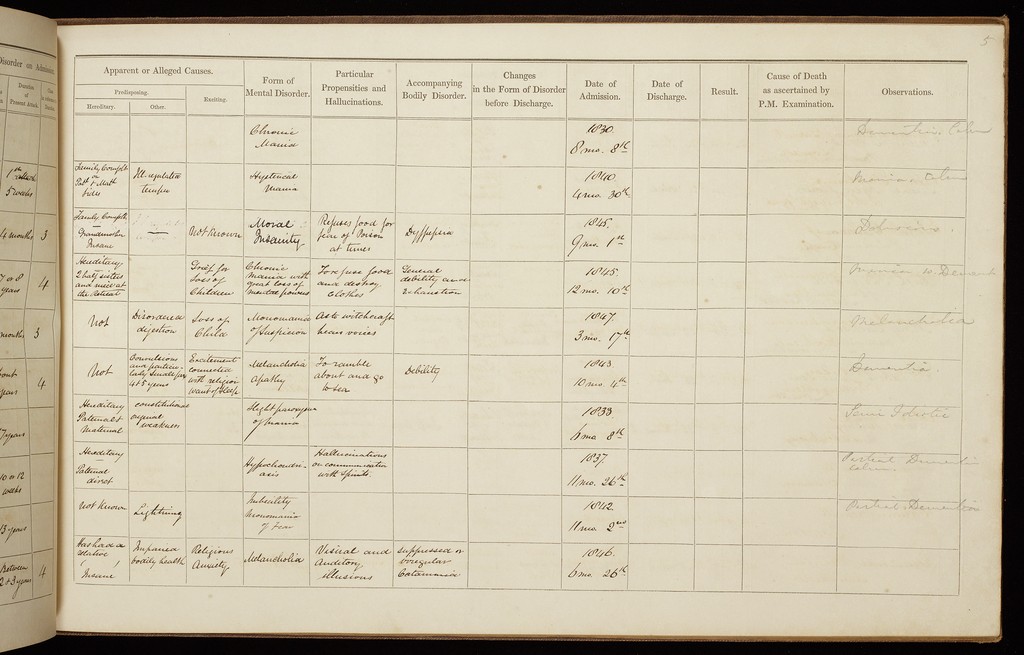 5
Disorder on Admission
Duration of Present Attack.
Apparent or Alleged Causes.
Predisposing.
Hereditary.
Other.
Exciting.
Form of
Mental Disorder.
Particular
Propensities and
Hallucinations.
Accompanying
Bodily Disorder.
Changes
in the Form of Disorder
before Discharge.
Date of
Admission.
Date of
Discharge.
Result.
Cause of Death
as ascertained by
P.M. Examination.
Observations.
Chronic
Mania
1830.
8 mo. 8th
Dementia.
1st attack
5 weeks
Family Complt
Path & Math
side
Ill. regulated
temper
Hysterical
Mania
1840.
4 mo. 30th
Mania.
4 months
3
Family Complt
Grandmother
Insane
Not Known
Moral
Insanity
Refuses food for
fear of Poison
at times
Dyspepsia
1845.
9 mo. 1st
Delusions.
7 or 8
years
4
Hereditary
2 half sisters
and niece at
the Retreat
Grief for
loss of
Children
Chronic
mania with
great loss of
mental powers
To refuse food
and destroy
Clothes
General
debility and
exhaustion
1845.
12 mo. 10th
months
3
Not
Disordered
digestion
Loss of
Child
Monomania
of Suspicion
As to witchcraft
hears voices
1847.
3 mo. 17th
Melancholia
4
years
Not
Convulsions
and particu-
larly
4 & 5 years
Excitement
connected
with religion
want of sleep
Melancholia
Apathy
To ramble
about and go
to sea
Debility
1843.
10 mo. 4th
Dementia.
7 years
Hereditary
Paternal &
Maternal
constitutional
original
weakness
Slight paroxysm
of mania
1833
6 mo 8th
Semi Idiotic
10 or 12
weeks
Hereditary
Paternal
direct
Hypochondri-
asis
Hallucinations
on communication
with Spirits.
1837.
11 mo. 26th
Partial Dementia
13 years
Not Known
Lightning
Imbecility
Monomania
of Fear
1842.
11 mo. 2nd
Partial Dementia
Between
2 & 3 years
4
Has had a
relative
Insane
Impaired
bodily health
Religious
Anxiety
Melancholia
Visual and
Auditory
illusions
suppressed or
irregular
Catamenia
1846.
6 mo. 26th